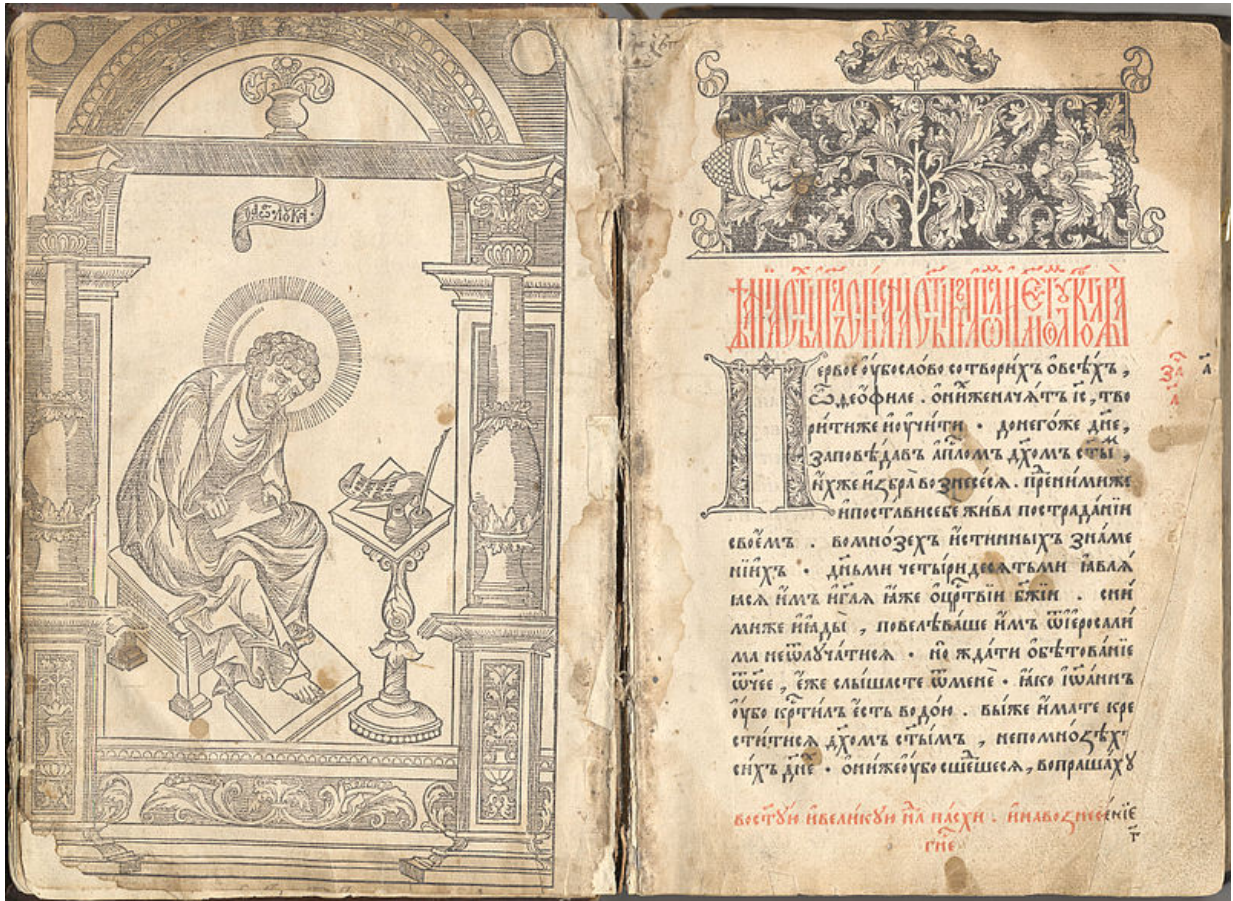 ст҃ы лꙋка
Первоеѹ҆бослово сотвори́хъ ѡвсѣ́хъ ,
ѽдеѻ҆́филе . ѻ҆ни́хженача́тъ іс҃ , тво
ри́тиже иѹ҆чи́ти . донего́же дн҃е ,
заповѣ́давъ а҆пⷭ҇ломъ дх҃омъ ст҃ыⷨ ,
и҆́хже и҆збра̀ вознесе́сѧ . преⷣни́миже
и҆поста́висебе жи́ва пострада́нїи
свое́мъ . вомно́зехъ и҆́стинныхъ зна́ме
нїихъ . дн҃ьми четы́ридесѧтьми ꙗ҆влѧ́ѧ
ꙗсѧ и҆́мъ иг҃лѧ ꙗ҆́же ѡцрⷭ҇твїи бж҃їи . сни́
миже иꙗ҆ды̀ , повелѣва́ше и҆́мъ ѿїеросали́
ма неѿлꙋча́тисѧ . но жда́ти ѡбѣтова́нїе
ѿч҃ее , е҆́же слы́шасте ѿменѐ . ꙗ҆́ко і҆ѡа́ннъ
ѹ҆́бо крⷭ҇ти́лъ е҆́сть водо́ю . вы́же и҆́мате кре
сти́тисѧ дх҃омъ ст҃ы́мъ , непомно́зѣхъ
си́хъ дн҃е . ѻ҆ни́жеѹ҆бо сше́дшесѧ , вопраша́хꙋ
за҃
а҃
а҃
вост҃ꙋ́ю ивели́кꙋю нл҃ па́схи . и҆навознесе́нїе
гн҃е